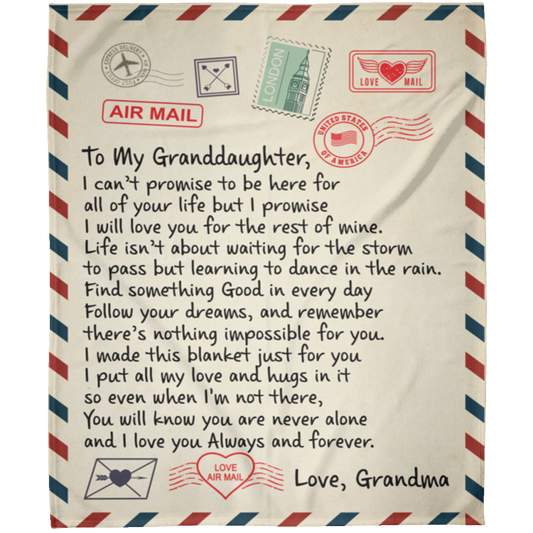 EXPRESS DELIVERY
LONDON
LOVE MAIL
AIR MAIL
UNITED STATES
OF AMERICA
To My Granddaughter,
I can't promise to be here for
all of your life but I promise
I will love you for the rest of mine.
Life isn't about waiting for the storm
to pass but learning to dance in the rain.
Find something Good in every day
Follow your dreams, and remember
there's nothing impossible for you.
I made this blanket just for you
I put all my love and hugs in it
so even when I'm not there,
You will know you are never alone
and I love you Always and forever.
LOVE
AIR MAIL
Love, Grandma